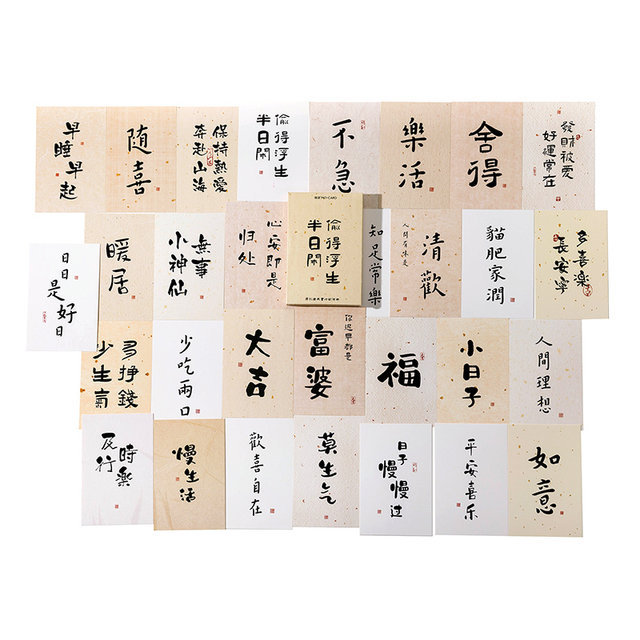 早睡早起
随喜
保持熱愛
奔赴山海
偷得浮生
半日閑
不急
樂活
舍得
發財被愛
好運常在
日日是好日
暖居
無事
小神仙
心安即是
归处
偷得浮生
半日閑
知足常樂
人間有味是
清歡
貓肥家潤
多喜樂
長安寧
多掙錢
少生氣
少吃兩口
大吉
你遲早都是
富婆
福
小日子
人間理想
及行
時樂
慢生活
歡喜自在
莫生气
日子
慢慢过
平安喜乐
如意